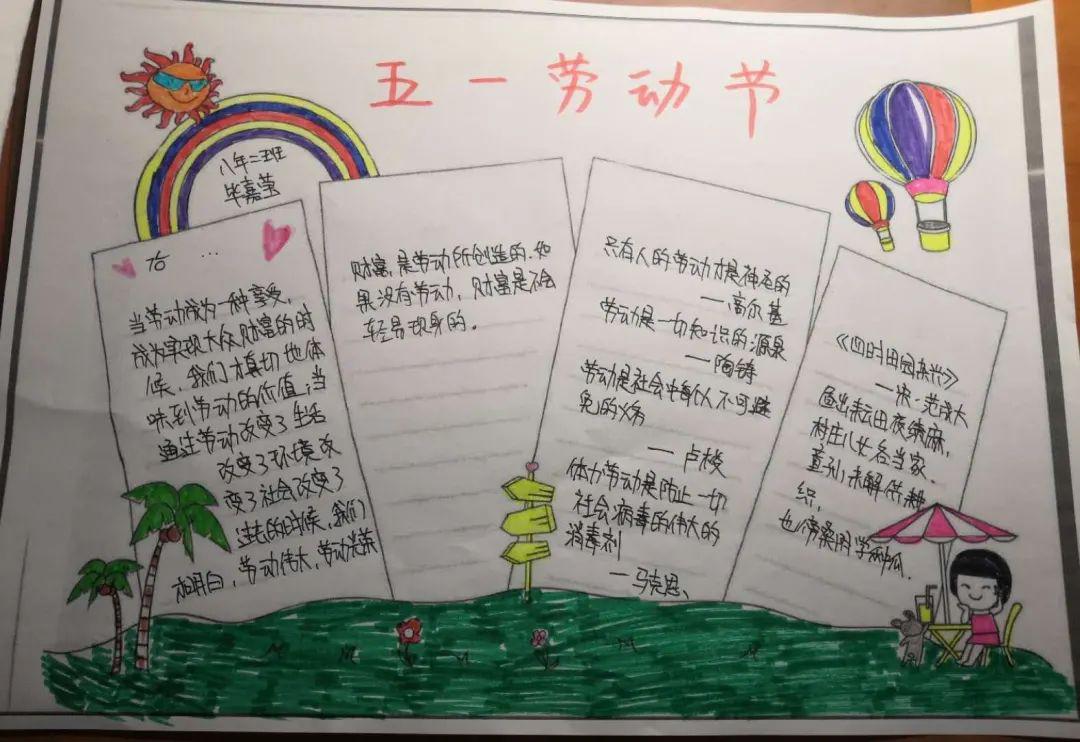 五一劳动节
八年二班
毕嘉莹
当劳动成为一种享受，
成为实现大众财富的时
候，我们才真切地体
味到劳动的价值；当
通过劳动改变了生活
改变了环境改
变了社会改变了
的时候，我们
明白，劳动伟大，劳动光荣
财富，是劳动所创造的.如
果没有劳动，财富是不会
轻易现身的。
只有人的劳动才是神圣的
——高尔基
劳动是一切知识的源泉
——陶铸
劳动是社会中每个人不可避
免的义务
——卢梭
体力劳动是防止一切
社会病毒的伟大的
消毒剂
——马克思、
《四时田园杂兴》
——宋·范成大
昼出耘田夜绩麻，
村庄儿女各当家.
童孙未解供耕
织，
也傍桑阴学种瓜.